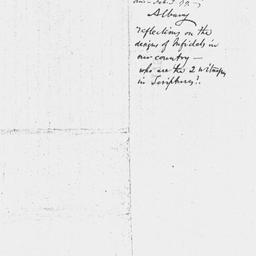 Albany
reflections on the
designs of Infidels in
our country —
who are the 2 witnesses
in Scriptures?